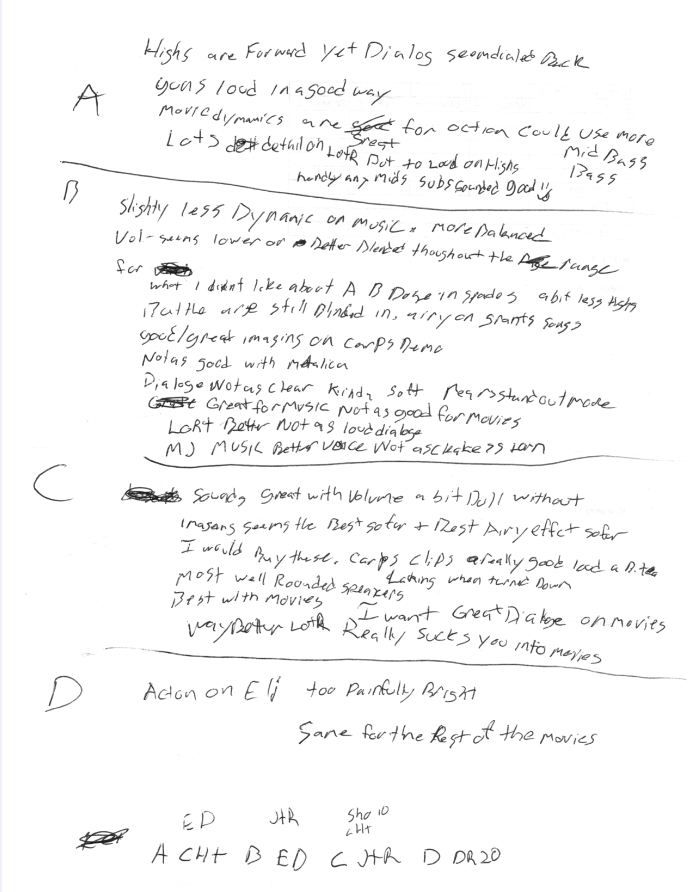 Highs are Forward yet Dialog seem dialed Back
A
guns loud in a good way
movie dynamics are great for action could use more
Mid Bass
Bass
Lots detail on LotR But to Loud on Highs
hardly any Mids subs sounded good
B
Slighty less Dynamic on music more Balanced
Vol-seems lower or Better Blended thoughout the range
for
what I didnt like about A B Dose in spades a bit less Highs
are still Blinded in, airy on grants songs
good/great imaging on Carps Demo
Not as good with metalica
Dialoge Not as clear Kinda soft stand out more
Great for Music Not as good for movies
LoRt Better Not as loud dialoge
MJ MUSIC Better voice Not as
C
Sounds Great with Volume a bit Dull without
Imagang seems the Best so far + Best Airy effct sofar
I would Buy these. Carps Clips really good load a
Most well Rounded speakers Laking when turned Down
Best with Movies I want Great Dialoge on movies
way Better LotR Really Sucks you into movies
D
Acton on Eli too Painfully Bright
Same for the Rest of the movies
ED JtR Sho 10
CHt
A CHt B ED C JtR D DR20